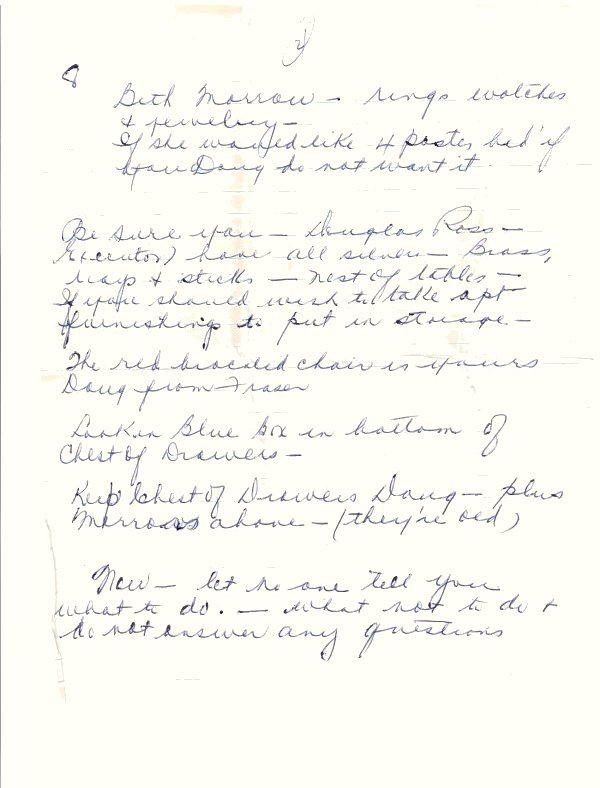 2
8
Beth Morrow — rings watches
& jewelry —
If she would like 4 poster bed if
you Doug do not want it
Be sure you — Douglas Ross —
Executor) have all silver — Brass,
& sticks — nest of tables —
If you should wish to take apt
furnishings to put in storage —
The red brocaded chair is yours
Doug from Fraser
Look in Blue Box in bottom of
Chest of Drawers —
Keep Chest of Drawers Doug — plus
above — (they're old)
Now — let no one tell you
what to do. — what not to do &
do not answer any questions